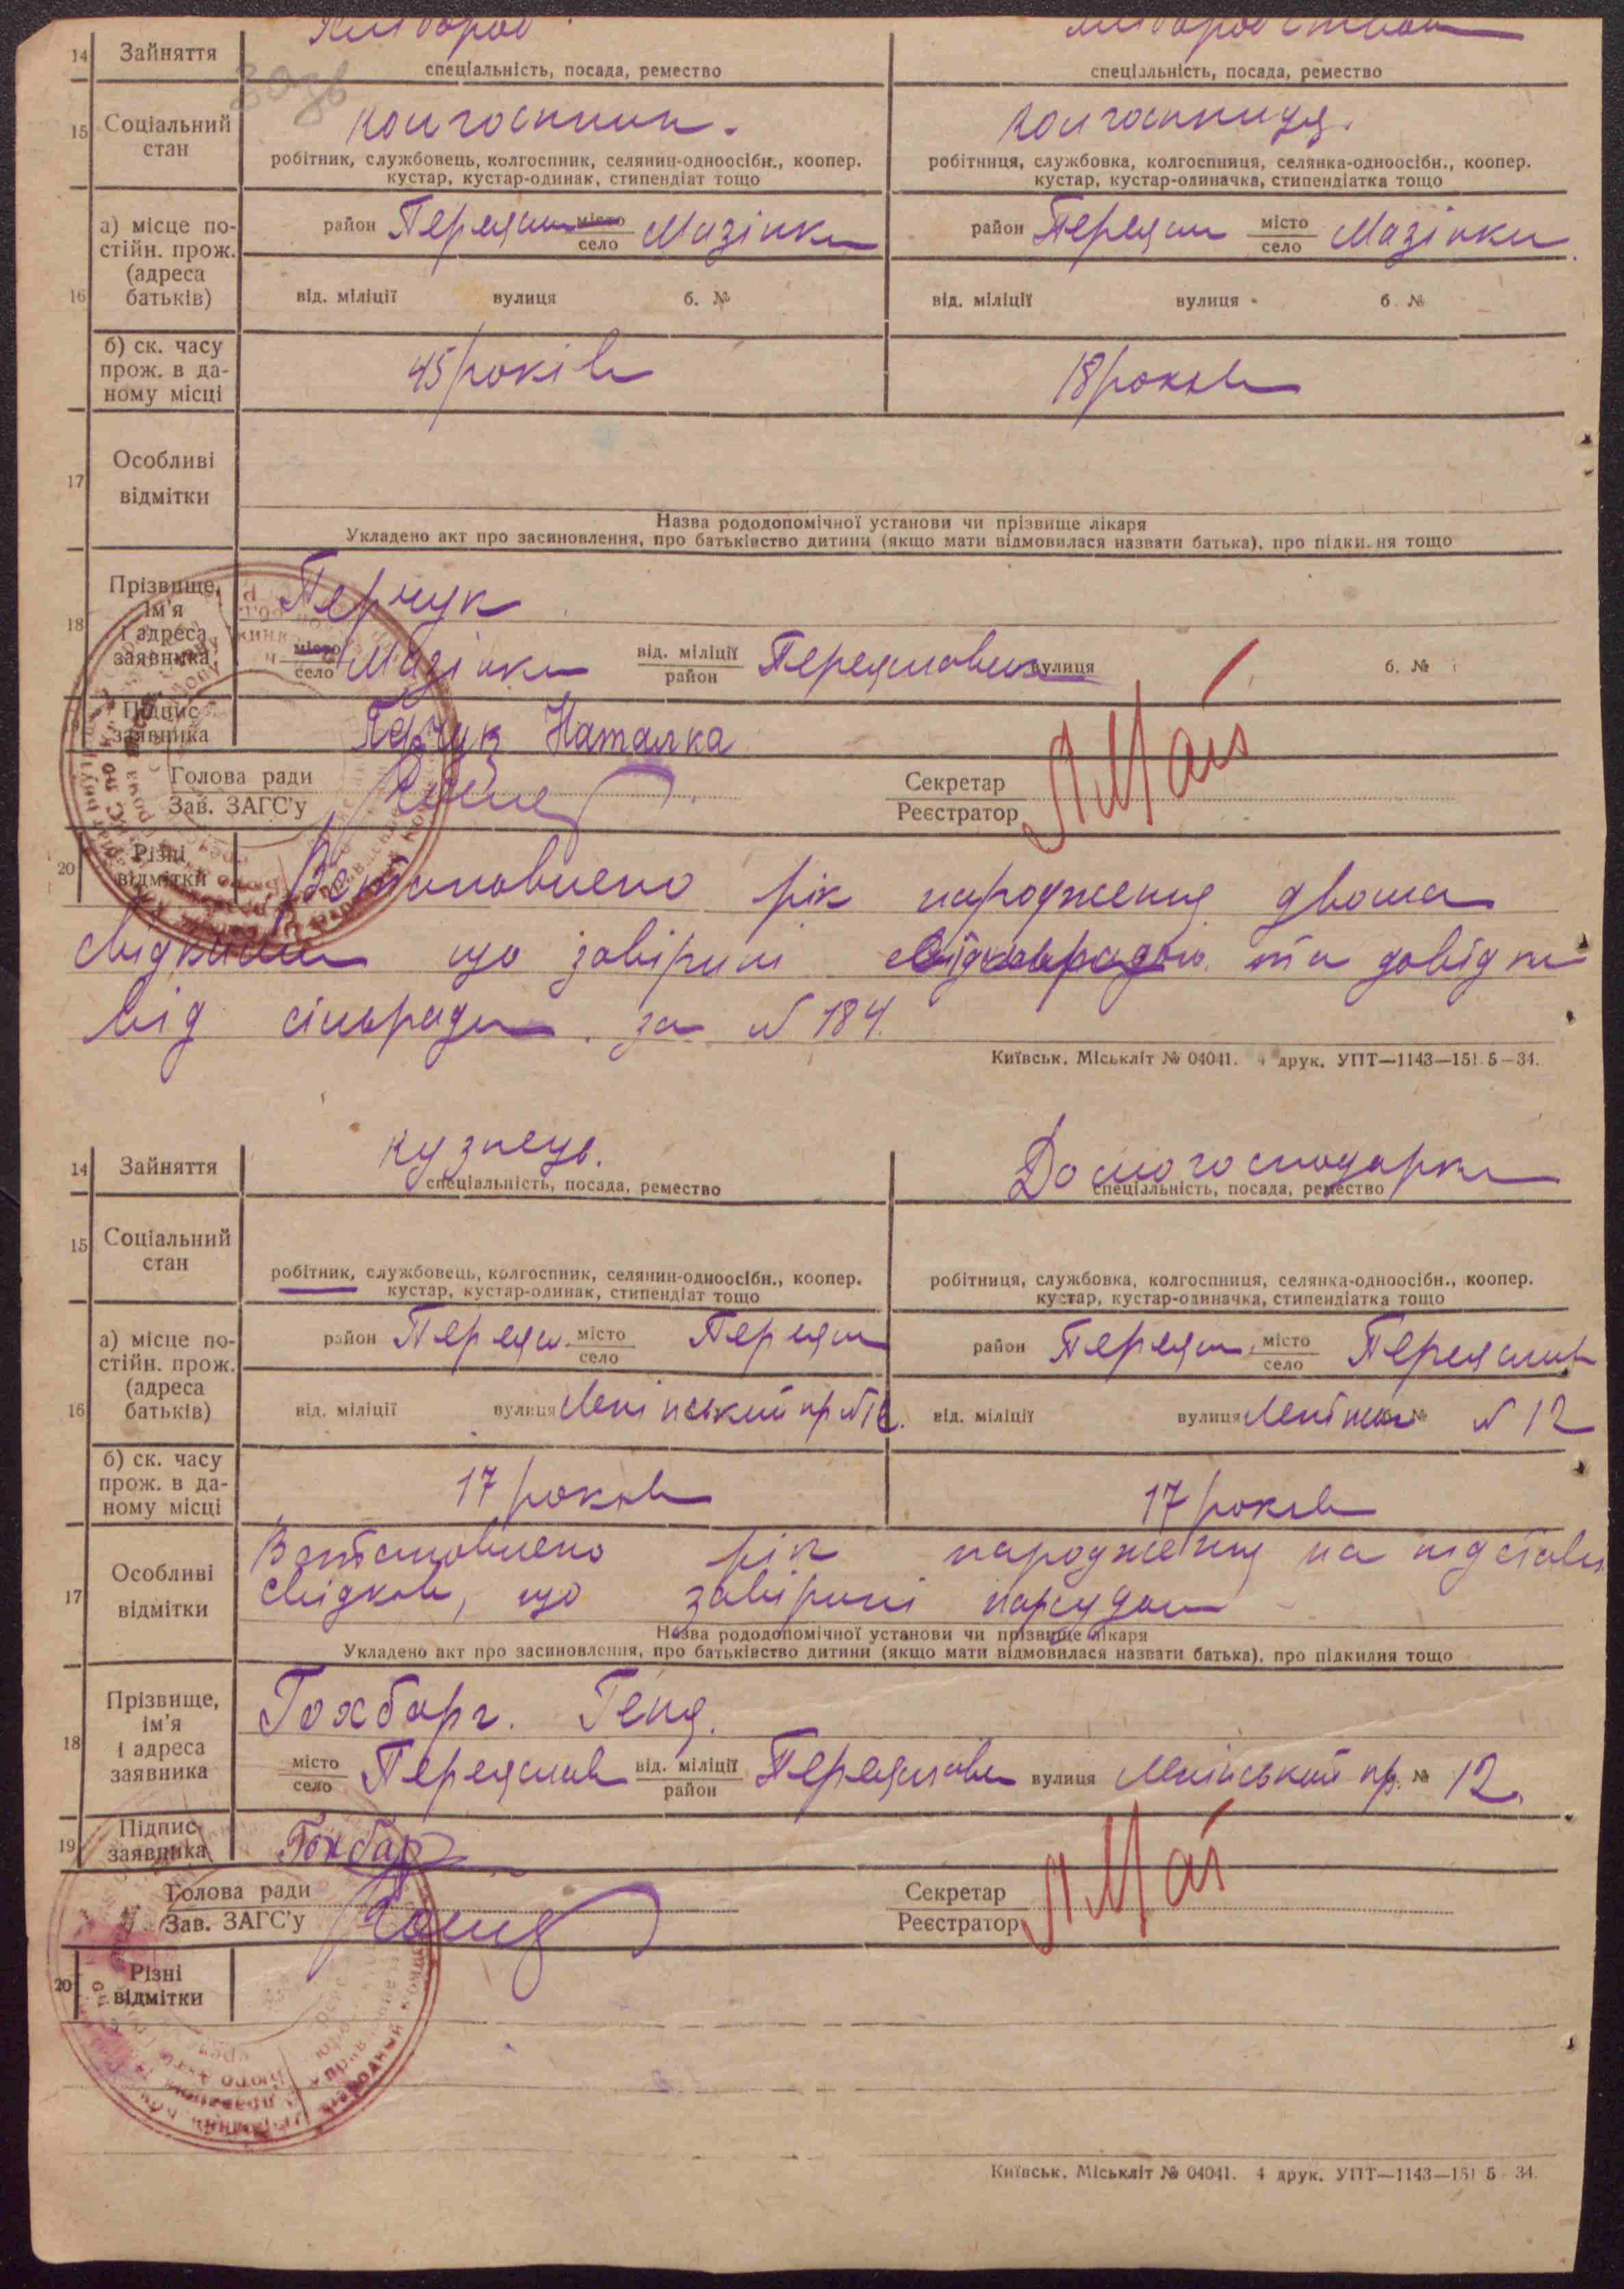 Хлібороб
14 Зайняття
спеціальність, посада, ремество
спеціальність, посада, ремество
15 Соціальний стан
колгоспник.
колгоспниця.
робітник, службовець, колгоспник, селянин-одноосібн., коопер.
кустар, кустар-одинак, стипендіат тощо
робітниця, службовка, колгоспниця, селянка-одноосібн., коопер.
кустар, кустар-одиначка, стипендіатка тощо
16 а) місце по-
стійн. прож.
(адреса
батьків)
район Переясл місто село Мазінки
район Переясл місто село Мазінки
від. міліції вулиця б. №
від. міліції вулиця б. №
б) ск. часу
прож. в да-
ному місці
45 років
18 років
17 Особливі
відмітки
Назва рододопомічної установи чи прізвище лікаря
Укладено акт про засиновлення, про батьківство дитини (якщо мати відмовилася назвати батька), про підки. ня тощо
18 Прізвище,
ім'я
і адреса
заявника
Перчук
місто село Мазінки від. міліції район Переяславськ вулиця б. №
Підпис
заявника
Перчук Наталка
Голова ради
Зав. ЗАГС'у
Секретар
Реєстратор
20 Різні
відмітки
Встановлено рік народження двома
свідками що завірині та довідки
від сільради за № 184.
Київськ. Міськліт № 04041. 4 друк. УПТ—1143—151. 5—34.
14 Зайняття
кузнець.
Домогосподарка
спеціальність, посада, ремество
спеціальність, посада, ремество
15 Соціальний
стан
робітник, службовець, колгоспник, селянин-одноосібн., коопер.
кустар, кустар-одинак, стипендіат тощо
робітниця, службовка, колгоспниця, селянка-одноосібн., коопер.
кустар, кустар-одиначка, стипендіатка тощо
16 а) місце по-
стійн. прож.
(адреса
батьків)
район Переясл місто село Переясл
район Переясл місто село Переяслав
від. міліції вулиця Ленінський пр №
від. міліції вулиця № 12
б) ск. часу
прож. в да-
ному місці
17 років
17 років
17 Особливі
відмітки
Встановлено рік народження на підставі
свідків, що завірині нарсудом
Назва рододопомічної установи чи прізвище лікаря
Укладено акт про засиновлення, про батьківство дитини (якщо мати відмовилася назвати батька), про підкидня тощо
18 Прізвище,
ім'я
і адреса
заявника
Гохбарг. Геня.
місто село Переяслав від. міліції район Переяслав вулиця Ленінський пр. № 12.
19 Підпис
заявника
Гохбар
Голова ради
Зав. ЗАГС'у
Секретар
Реєстратор
20 Різні
відмітки
Київськ. Міськліт № 04041. 4 друк. УПТ—1143—151 5 34.